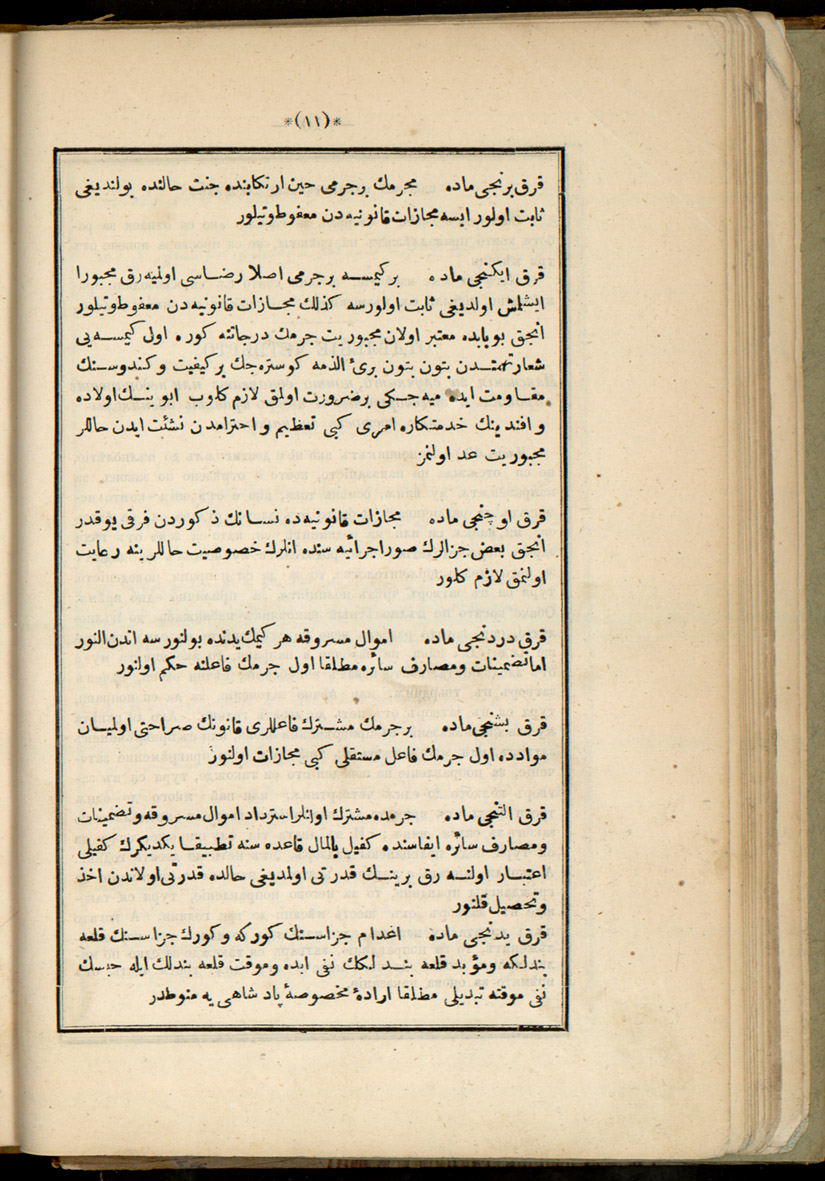 *(١١)*
قرق برنجی ماده مجرمك برجرمی حین ارتكابنده جنت حالنده بولندیغی
ثابت اولور ایسه مجازات قانونیه دن معفوطوتیلور
قرق ایكنجی ماده بركیمسه برجرمی اصلا رضاسی اولمیه رق مجبورا
ایشلمش اولدیغی ثابت اولورسه كذلك مجازات قانونیه دن معفوطوتیلور
انجق بوبابده معتبر اولان مجبوریت جرمك درجاتنه كوره اول كیمسه یی
بتون بتون برئ الذمه كوستره جك بركیفیت وكندوسنك
مقاومت ایده میه جكی برضرورت اولمق لازم كلوب ابوینك اولاده
وافندینك خدمتكاره امری كبی تعظیم واحترامدن نشئت ایدن حاللر
مجبوریت عد اولنمز
قرق اوچنجی ماده مجازات قانونیه ده نسانك ذكوردن فرقی یوقدر
انجق بعض جزالرك صوراجرائیه سنده انلرك خصوصیت حاللرینه رعایت
اولنمق لازم كلور
قرق دردنجی ماده اموال مسروقه هر كیمك یدنده بولنورسه اندن النور
اماتضمینات ومصارف سائره مطلقا اول جرمك فاعلنه حكم اولنور
قرق بشنجی ماده برجرمك مشترك فاعللری قانونك صراحتی اولمیان
موادده اول جرمك فاعل مستقلی كبی مجازات اولنور
قرق التنجی ماده جرمده مشترك اولانلر استرداد اموال مسروقه وتضمینات
ومصارف سائره ایفاسنده كفیل بالمال قاعده سنه تطبیقا یكدیكرك كفیلی
اعتبار اولنه رق برینك قدرتی اولمدیغی حالده قدرتی اولاندن اخذ
وتحصیل قلنور
قرق یدنجی ماده اعدام جزاسنك كوركه وكورك جزاسنك قلعه
بندلكه ومؤبد قلعه بندلكك نفی ابده وموقت قلعه بندلك ایله حبسك
نفی موقته تبدیلی مطلقا ارادهٔ مخصوصهٔ پادشاهی یه منوطدر